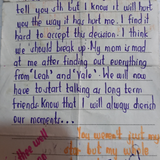 tell you sth but I know it will hurt
you the way it has hurt me. I find it
hard to accept this decision. I think
we should break up. My mom is mad
at me after finding out everything
from "Leah" and "Yale". We will now
have to start talking as long term
friends. Know that I will always cherish
our moments...
the well
You moment just may
else but my while